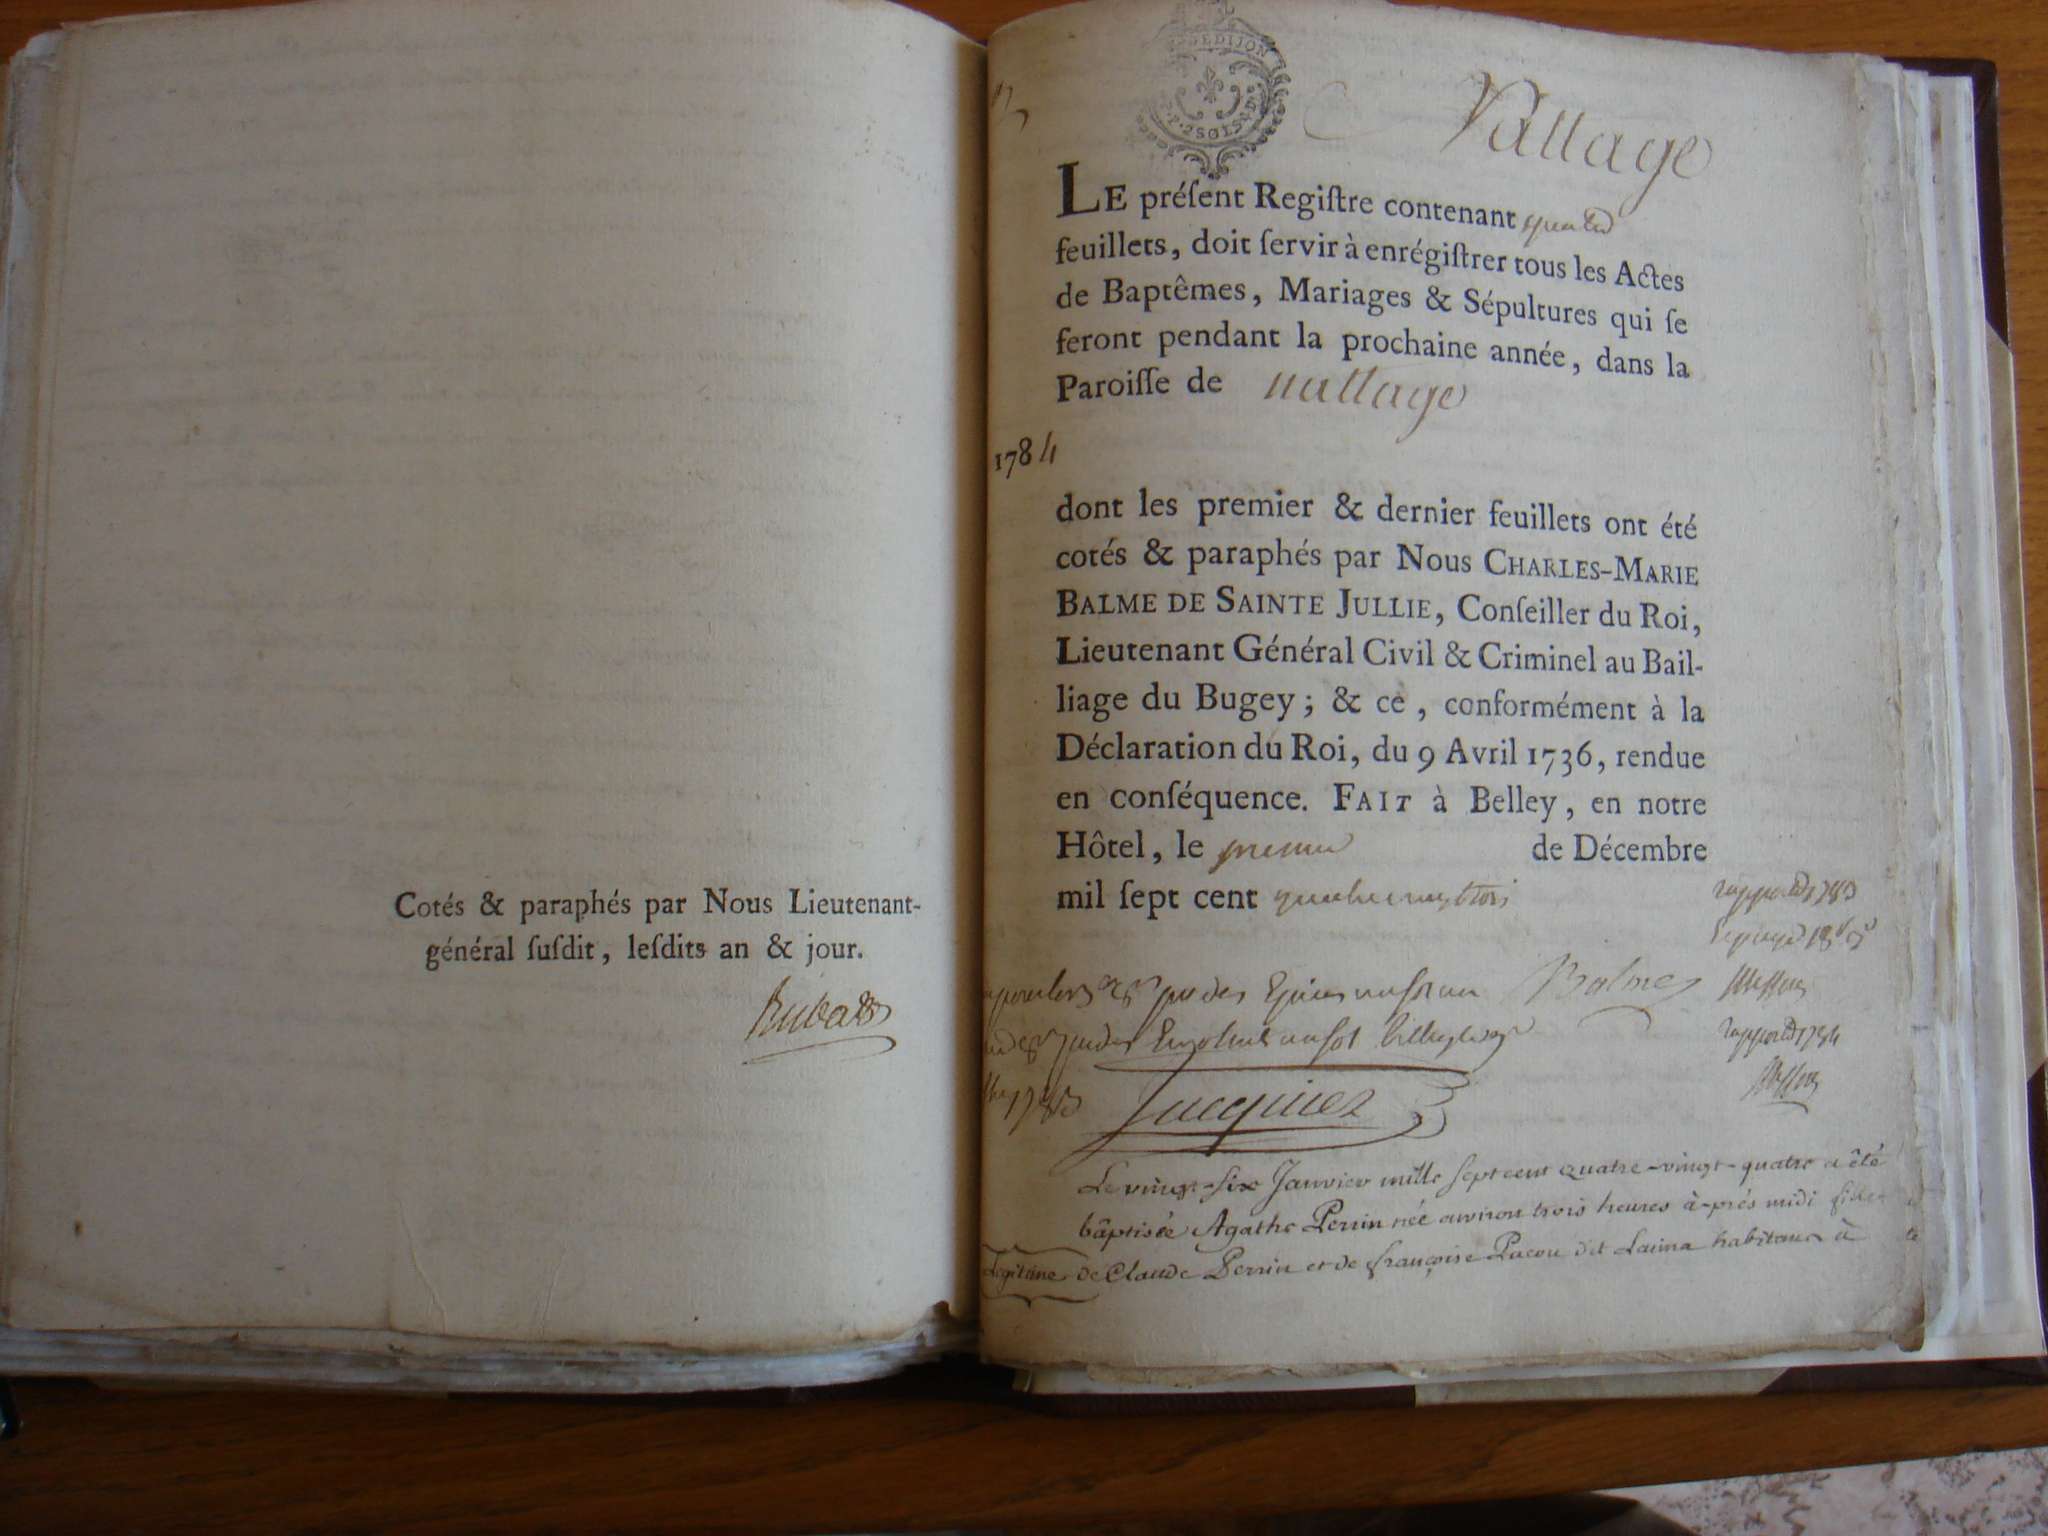 Cotés & paraphés par Nous Lieutenant-
général ſuſdit, leſdits an & jour.
DEDIJON
2SOLS
Nattage
LE préſent Regiſtre contenant
feuillets, doit ſervir à enrégiſtrer tous les Actes
de Baptêmes, Mariages & Sépultures qui ſe
feront pendant la prochaine année, dans la
Paroiſſe de nattage
1784
dont les premier & dernier feuillets ont été
cotés & paraphés par Nous CHARLES-MARIE
BALME DE SAINTE JULLIE, Conſeiller du Roi,
Lieutenant Général Civil & Criminel au Bail-
liage du Bugey; & ce, conformément à la
Déclaration du Roi, du 9 Avril 1736, rendue
en conſéquence. FAIT à Belley, en notre
Hôtel, le premier de Décembre
mil ſept cent quatre vingt trois
rapporté 1783
Balme
rapporté 1784
Jacquier
Le vingt-six Janvier mille sept cent quatre-vingt-quatre a êté
bâptisée Agathe Perrin née environ trois heures à-prés midi fille
Legitime de Claude Perrin et de françoise Pacou dit Laima habitans à